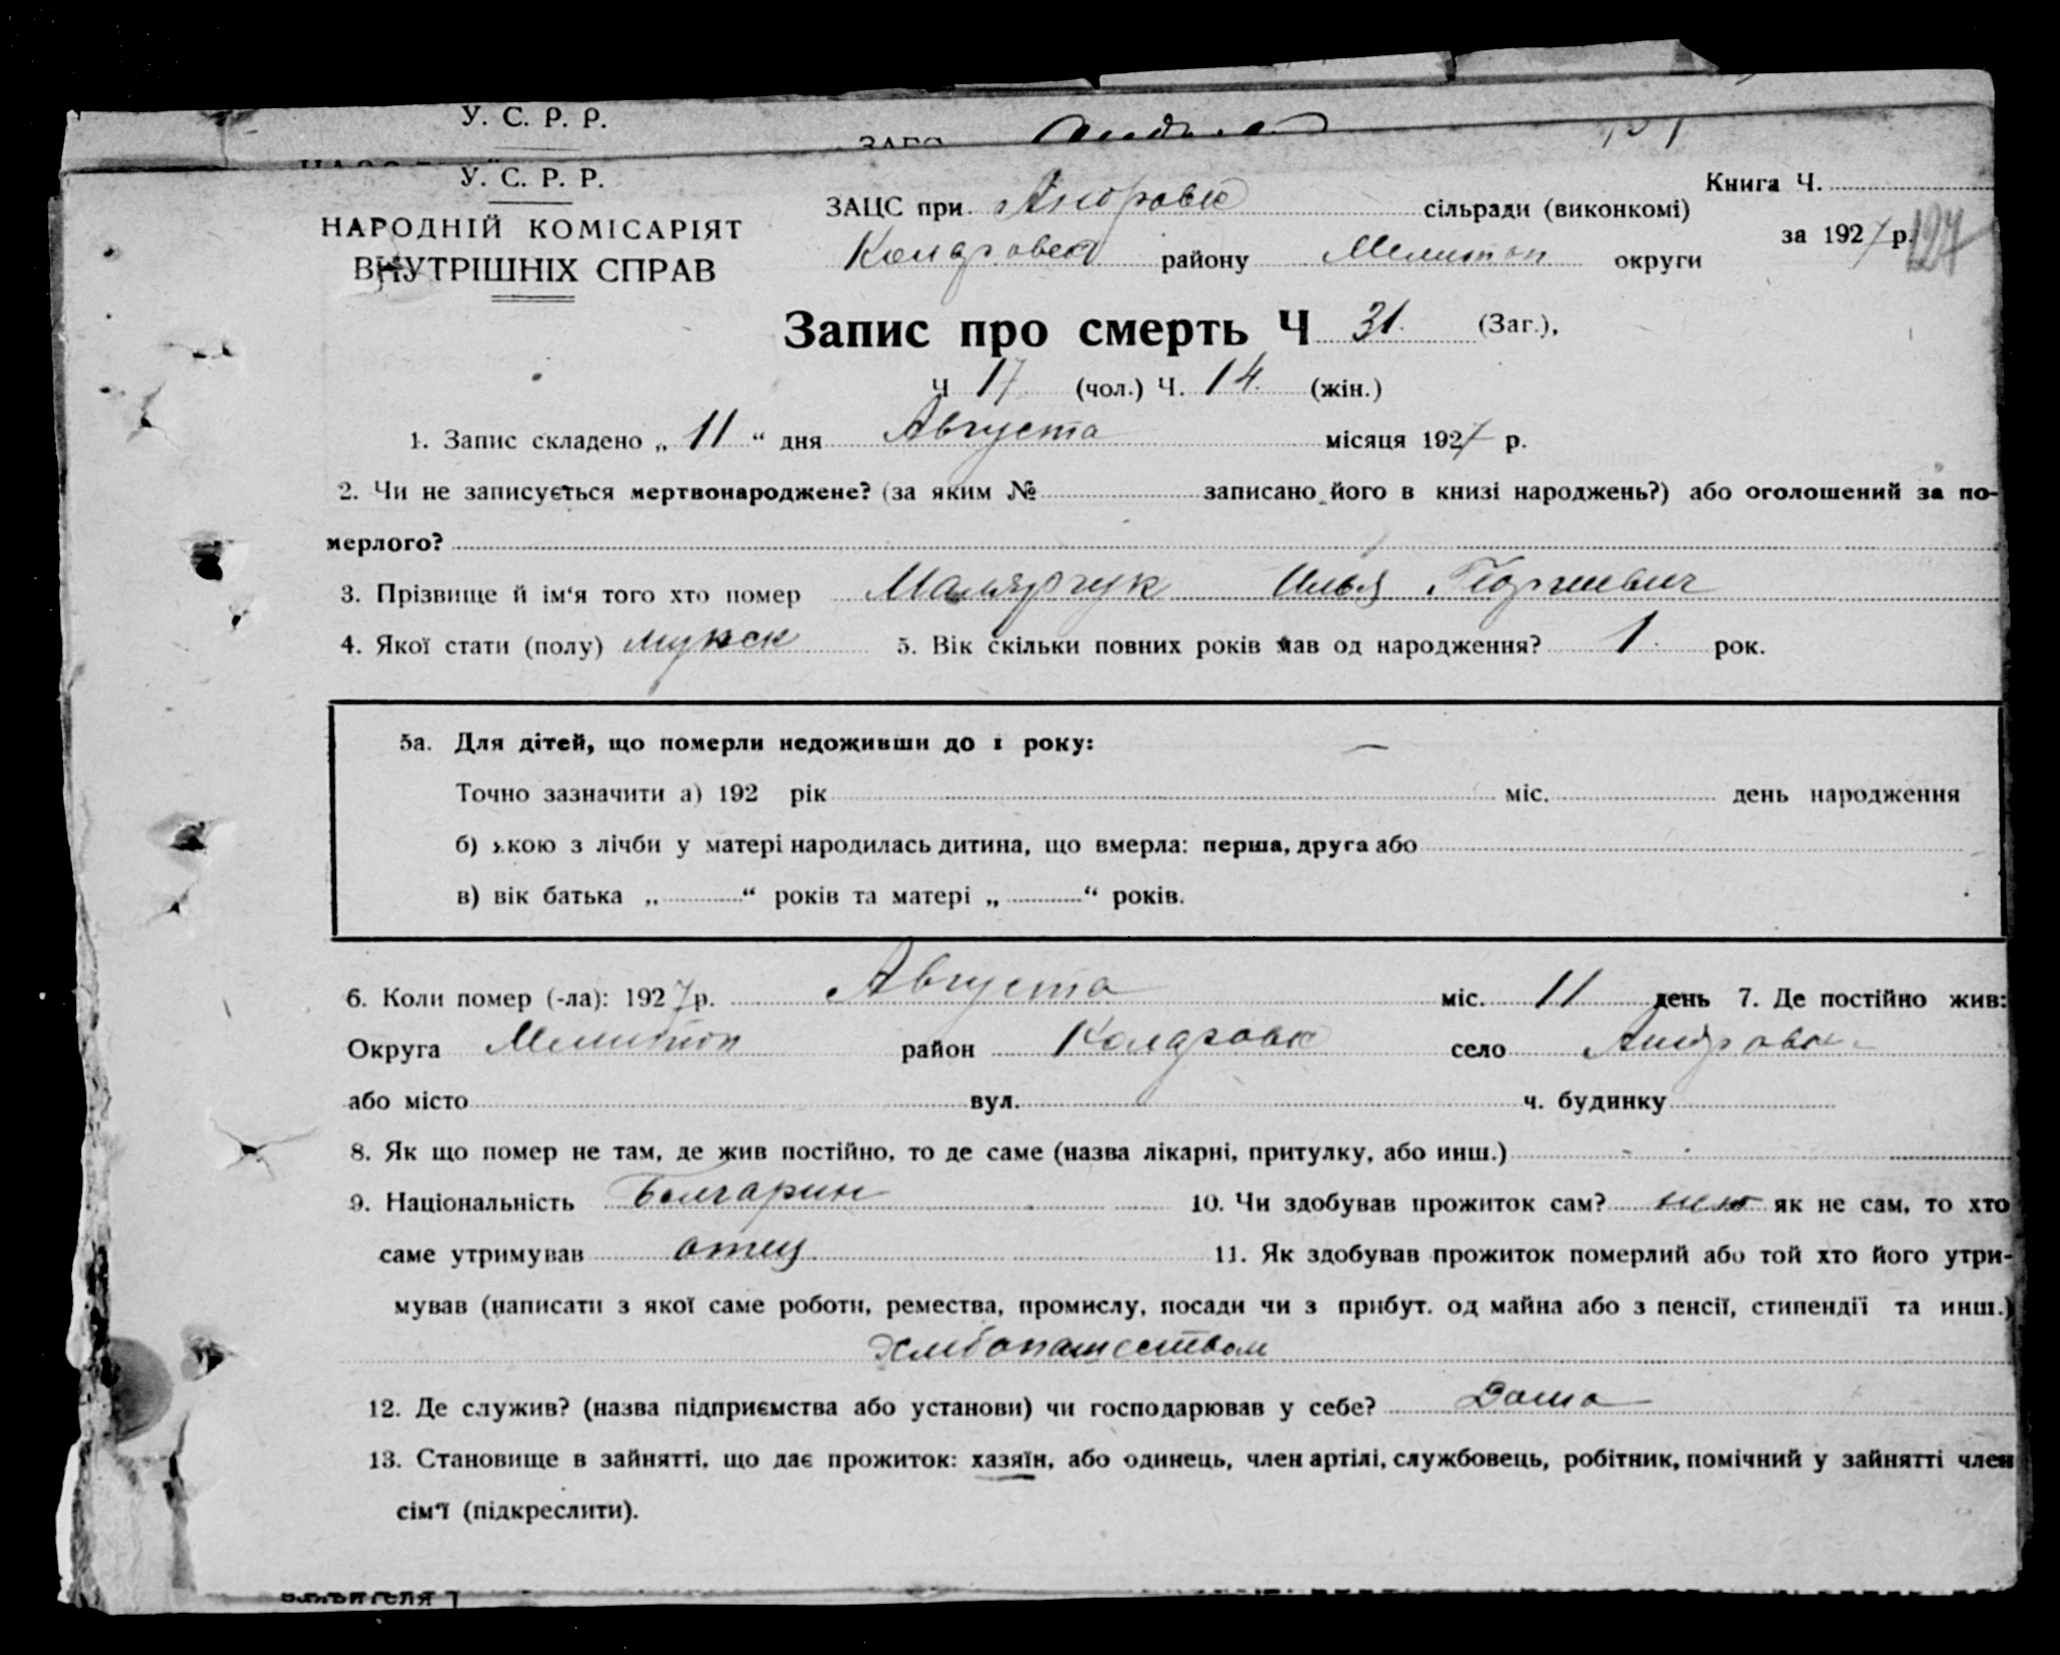 У. С. Р. Р.
У. С. Р. Р.
НАРОДНІЙ КОМІСАРІЯТ
ВНУТРІШНІХ СПРАВ
Книга Ч.
за 1927 р. 127
ЗАЦС при Андровк сільради (виконкомі)
району Мелитоп округи
Запис про смерть Ч 31. (Заг.),
Ч 17 (чол.) Ч. 14. (жін.)
1. Запис складено „ 11 “ дня Августа місяця 1927 р.
2. Чи не записується мертвонароджене? (за яким № записано його в книзі народжень?) або оголошений за по-
мерлого?
3. Прізвище й ім‘я того хто помер Малярчук Илья Георгиевич
4. Якої стати (полу) мужск 5. Вік скільки повних років мав од народження? 1 рок.
5а. Для дітей, що померли недоживши до 1 року: —
Точно зазначити а) 192 рік міс. день народження
б) якою з лічби у матері народилась дитина, що вмерла: перша, друга або
в) вік батька „ “ років та матері „ “ років.
6. Коли помер (-ла): 1927 р. Августа міс. 11 день 7. Де постійно жив:
Округа Мелитоп район Коларовк село Андровк
або місто вул. ч. будинку
8. Як що помер не там, де жив постійно, то де саме (назва лікарні, притулку, або инш.)
9. Національність Болгарин 10. Чи здобував прожиток сам? нет як не сам, то хто
саме утримував отец 11. Як здобував прожиток померлий або той хто його утри-
мував (написати з якої саме роботи, ремества, промислу, посади чи з прибут. од майна або з пенсії, стипендії та инш.)
Хлебопашеством
12. Де служив? (назва підприємства або установи) чи господарював у себе? Дома
13. Становище в зайнятті, що дає прожиток: хазяїн, або одинець, член артілі, службовець, робітник, помічний у зайнятті член
сім‘ї (підкреслити).